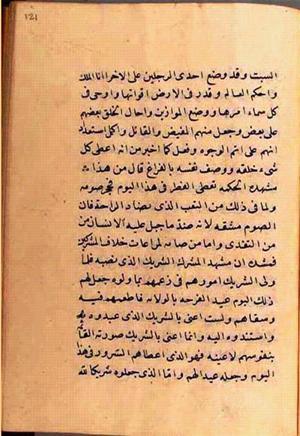 ١٢١
السبت وقد وضع احدى الرجلين على الاخر انا الملك
واحكم العالم وقدر في الارض اقواتها واوحى في
كل سماء امرها ووضع الموازين واحال الخلق بعضهم
على بعض وجعل منهم المفيض والقابل وكمل استعداد
اتهم على اتم الوجوه وفضل كما اخبر من انه اعطى كل
شيء خلقه ووصف نفسه بالفراغ قال من هذا
مشهده الحكمة تعطي الفطر في هذا اليوم فحجر صومه
ولما في ذلك من التعب الذى يضاد الراحة فان
الصوم مشقة لانه ضد ما جبل عليه الانسان من
من التغذى واما من صامه لمراعات خلاف المشركين
فمشهده ان مشهد المشرك الشريك الذى نصبه فلما
ولى الشريك امورهم في زعمهم بما ولوه جعل لهم
ذلك اليوم عيد الفرحه بالولاية فاطعمهم فيه
وسقاهم ولست اعنى بالشريك الذى عبدوه
واستندوه اليه وانما اعنى بالشريك صورته القائمة
بنفوسهم لا عينه فهو الذى اعطاهم السرور في هذا
اليوم وجعله عيدا لهم واما الذى جعلوه شريكا لله